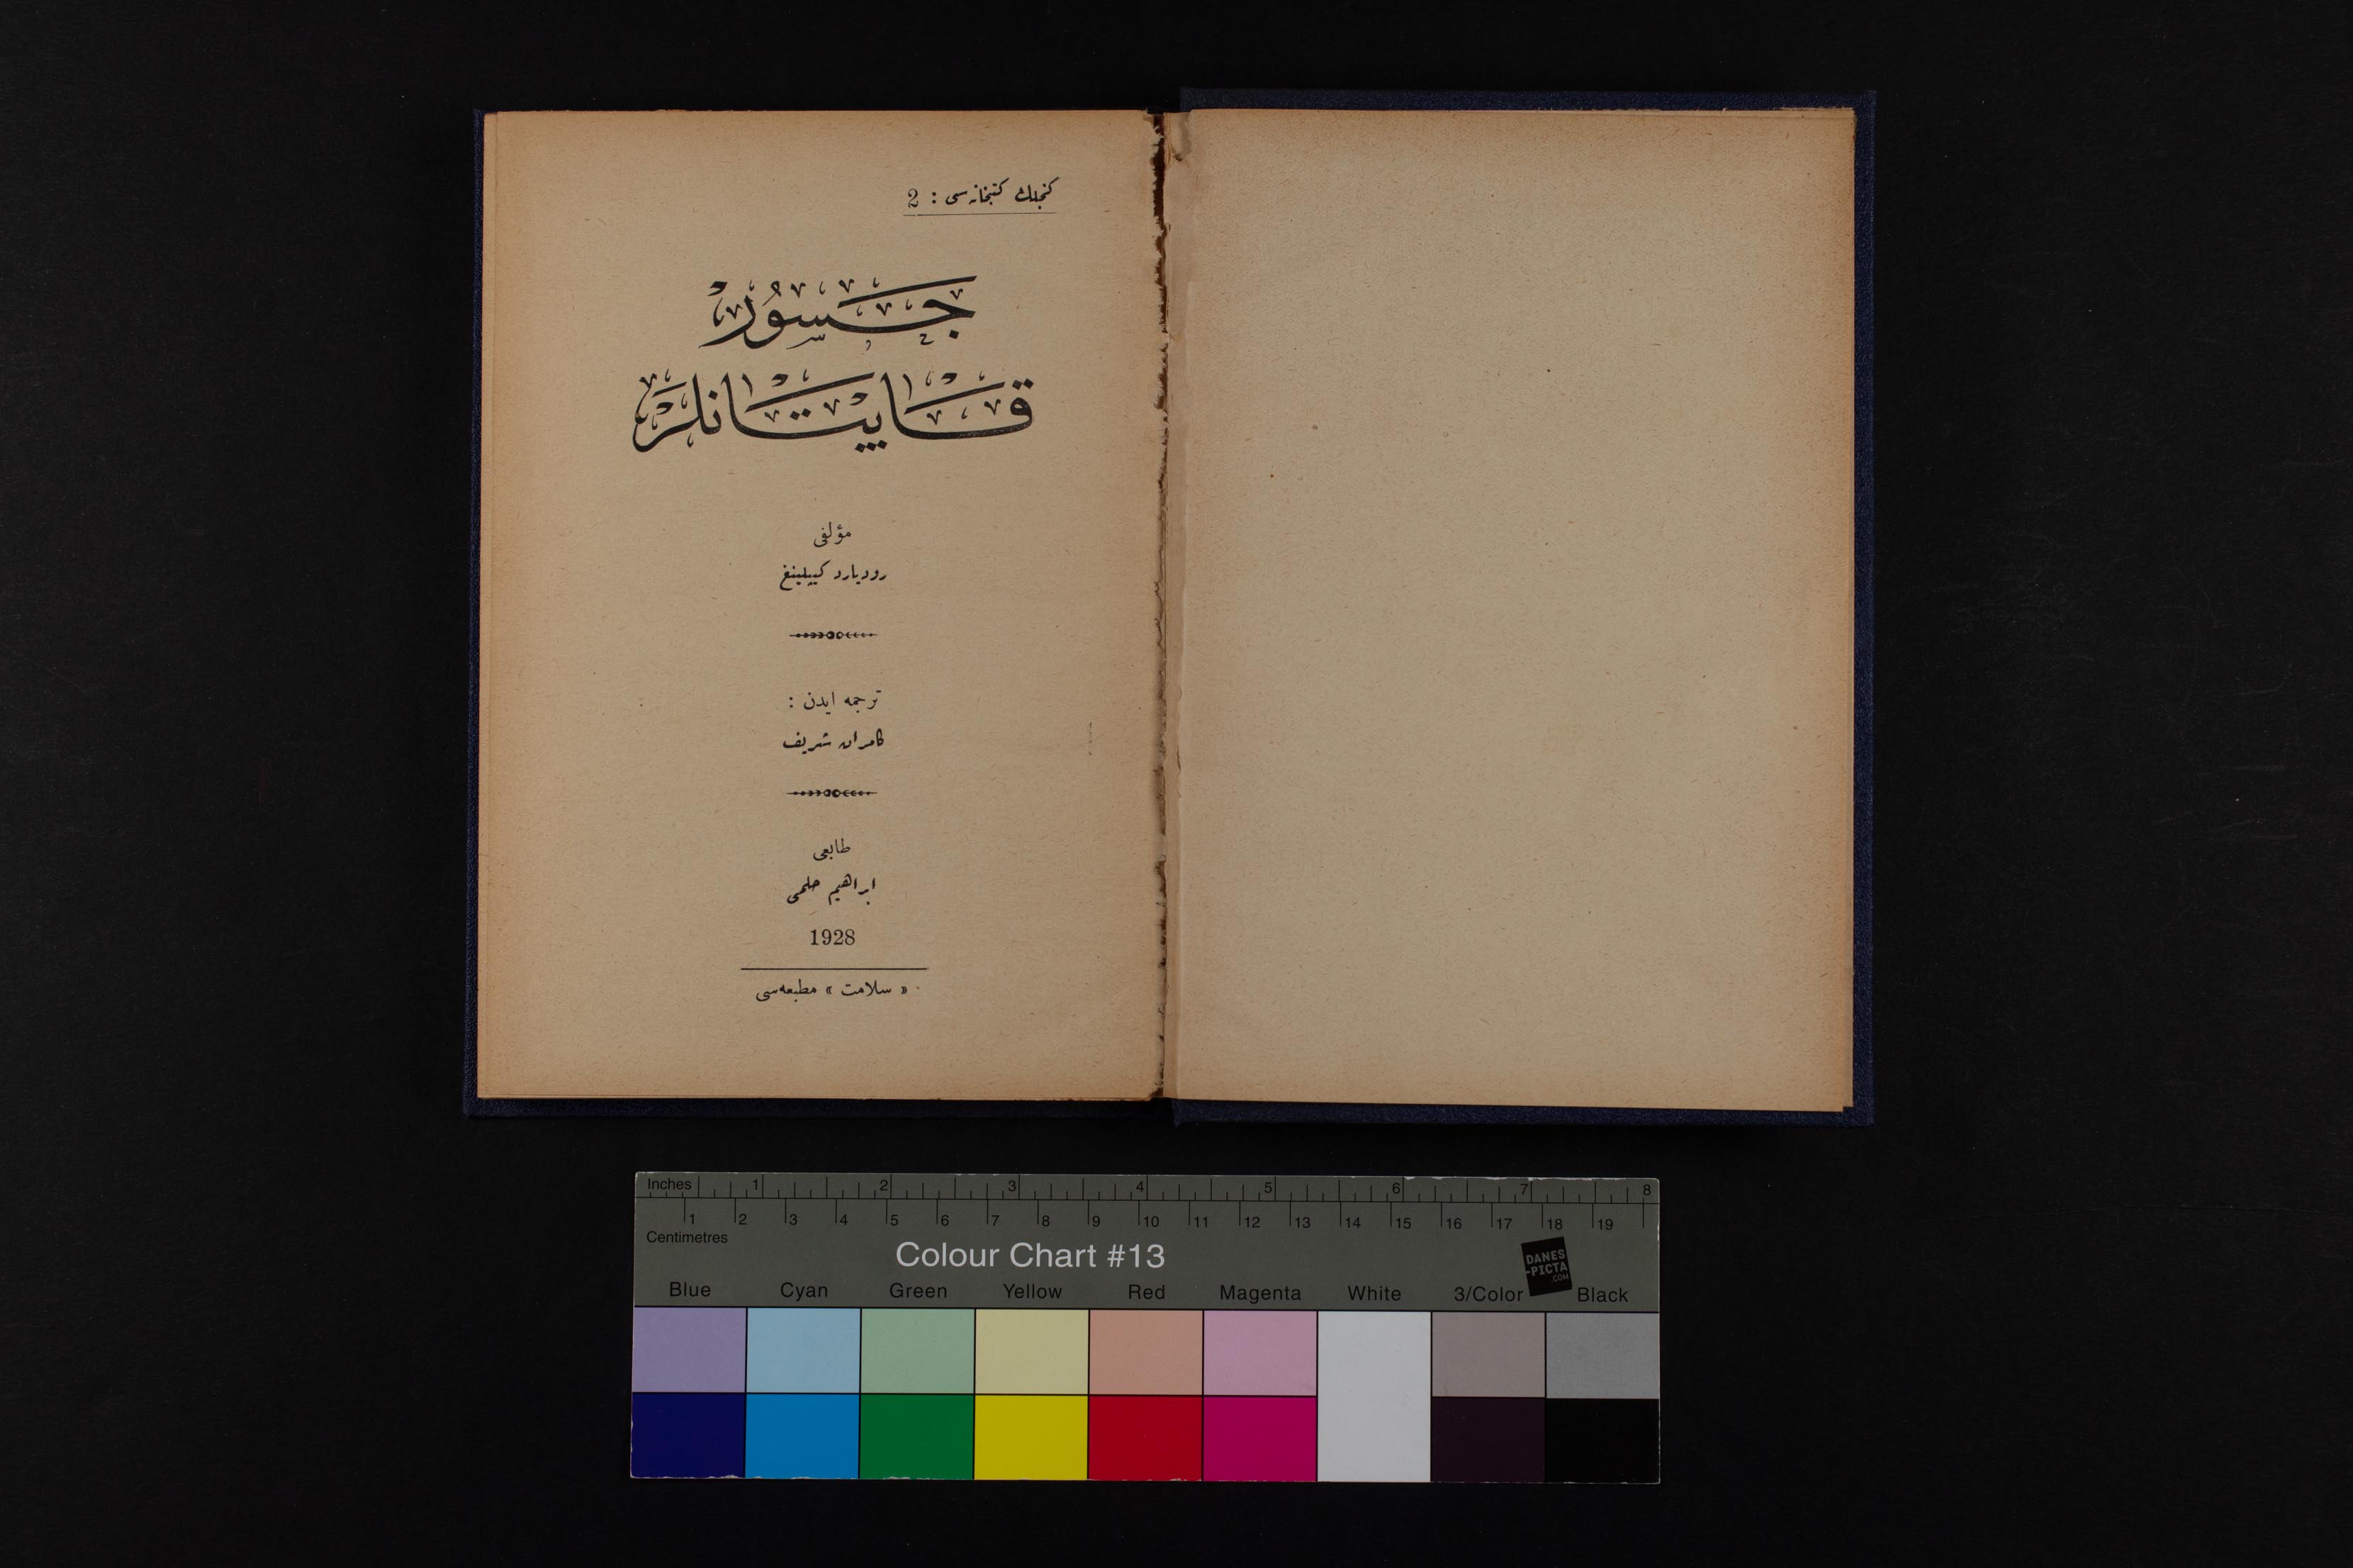 كنجلك كتبخانه‌سی : 2
جسور
قاپیتانلر
مؤلفی
رودیارد كیپلینغ
ترجمه ایدن :
كامران شریف
طابعی
ابراهیم حلمی
1928
« سلامت » مطبعه‌سی
Inches 1 2 3 4 5 6 7 8
1 2 3 4 5 6 7 8 9 10 11 12 13 14 15 16 17 18 19
Centimetres
Colour Chart #13
DANES
-PICTA
.COM
Blue Cyan Green Yellow Red Magenta White 3/Color Black